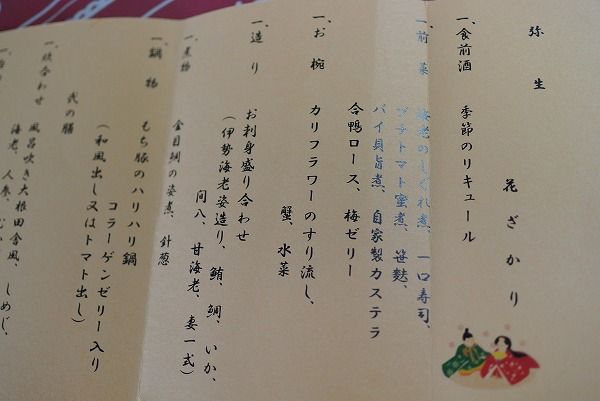 弥生
花ざかり
一、食前酒 季節のリキュール
一、前菜 海老のしぐれ煮、一口寿司、
プチトマト蜜煮、笹麩、
バイ貝旨煮、自家製カステラ
合鴨ロース、梅ゼリー
一、お椀 カリフラワーのすり流し、
蟹、水菜
一、造り お刺身盛り合わせ
(伊勢海老姿造り、鮪、鯛、いか、
間八、甘海老、妻一式)
一、煮物 金目鯛の姿煮、針葱
一、鍋物 もち豚のハリハリ鍋
コラーゲンゼリー入り
(和風出し又はトマト出し)
弐の膳
一、炊合わせ 風呂吹き大根田舎風、
海老、人参、しめじ、